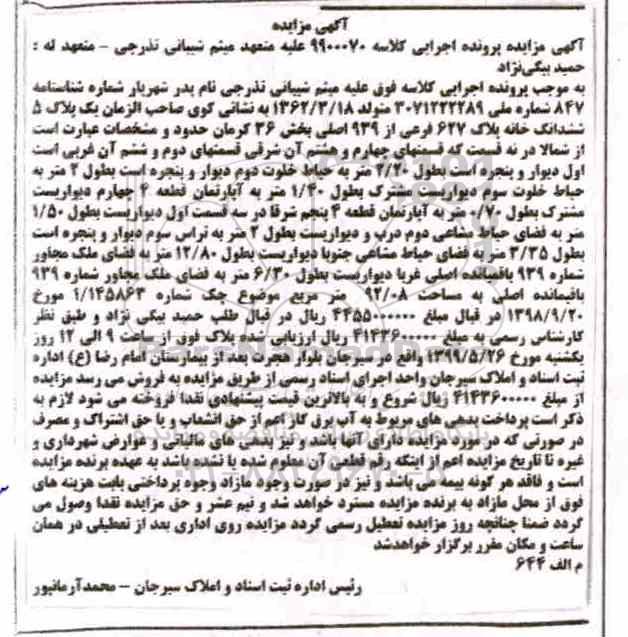 آگهی مزایده
آگهی مزایده پرونده اجرایی کلاسه ۹۹۰۰۰۷۰ علیه متعهد میثم شیبانی تذرجی - متعهد له :
حمید بیگی‌نژاد
به موجب پرونده اجرایی کلاسه فوق علیه میثم شیبانی تذرجی نام پدر شهریار شماره شناسنامه
۸۴۷ شماره ملی ۳۰۷۱۲۲۲۲۸۹ متولد ۱۳۶۲/۳/۱۸ به نشانی کوی صاحب الزمان یک پلاک ۵
ششدانگ خانه پلاک ۶۲۷ فرعی از ۹۳۹ اصلی بخش ۳۶ کرمان حدود و مشخصات عبارت است
از شمالا در نه قسمت که قسمتهای چهارم و هشتم آن شرقی قسمتهای دوم و ششم آن غربی است
اول دیوار و پنجره است بطول ۳/۲۰ متر به حیاط خلوت دوم دیوار و پنجره است بطول ۲ متر به
حیاط خلوت سوم دیواریست مشترک بطول ۱/۴۰ متر به آپارتمان قطعه ۴ چهارم دیواریست
مشترک بطول ۰/۷۰ متر به آپارتمان قطعه ۴ پنجم شرقا در سه قسمت اول دیواریست بطول ۱/۵۰
متر به فضای حیاط مشاعی دوم درب و دیواریست بطول ۲ متر به تراس سوم دیوار و پنجره است
بطول ۳/۳۵ متر به فضای حیاط مشاعی جنوبا دیواریست بطول ۱۲/۸۰ متر به فضای ملک مجاور
شماره ۹۳۹ باقیمانده اصلی غربا دیواریست بطول ۶/۳۰ متر به فضای ملک مجاور شماره ۹۳۹
باقیمانده اصلی به مساحت ۹۲/۰۸ متر مربع موضوع چک شماره ۱/۱۴۵۸۶۳ مورخ
۱۳۹۸/۹/۲۰ در قبال مبلغ ۴۴۵۵۰۰۰۰۰۰ ریال در قبال طلب حمید بیگی نژاد و طبق نظر
کارشناس رسمی به مبلغ ۴۱۴۳۶۰۰۰۰۰ ریال ارزیابی شده پلاک فوق از ساعت ۹ الی ۱۲ روز
یکشنبه مورخ ۱۳۹۹/۵/۲۶ واقع در سیرجان بلوار هجرت بعد از بیمارستان امام رضا (ع) اداره
ثبت اسناد و املاک سیرجان واحد اجرای اسناد رسمی از طریق مزایده به فروش می رسد مزایده
از مبلغ ۴۱۴۳۶۰۰۰۰۰ ریال شروع و به بالاترین قیمت پیشنهادی نقدا فروخته می شود لازم به
ذکر است پرداخت بدهی های مربوط به آب برق گاز اعم از حق انشعاب و یا حق اشتراک و مصرف
در صورتی که در مورد مزایده دارای آنها باشد و نیز بدهی های مالیاتی و عوارض شهرداری و
غیره تا تاریخ مزایده اعم از اینکه رقم قطعی آن معلوم شده یا نشده باشد به عهده برنده مزایده
است و فاقد هر گونه بیمه می باشد و نیز در صورت وجود مازاد وجوه پرداختی بابت هزینه های
فوق از محل مازاد به برنده مزایده مسترد خواهد شد و نیم عشر و حق مزایده نقدا وصول می
گردد ضمنا چنانچه روز مزایده تعطیل رسمی گردد مزایده روی اداری بعد از تعطیلی در همان
ساعت و مکان مقرر برگزار خواهدشد
م الف ۶۴۴
رئیس اداره ثبت اسناد و املاک سیرجان - محمدآرمانپور